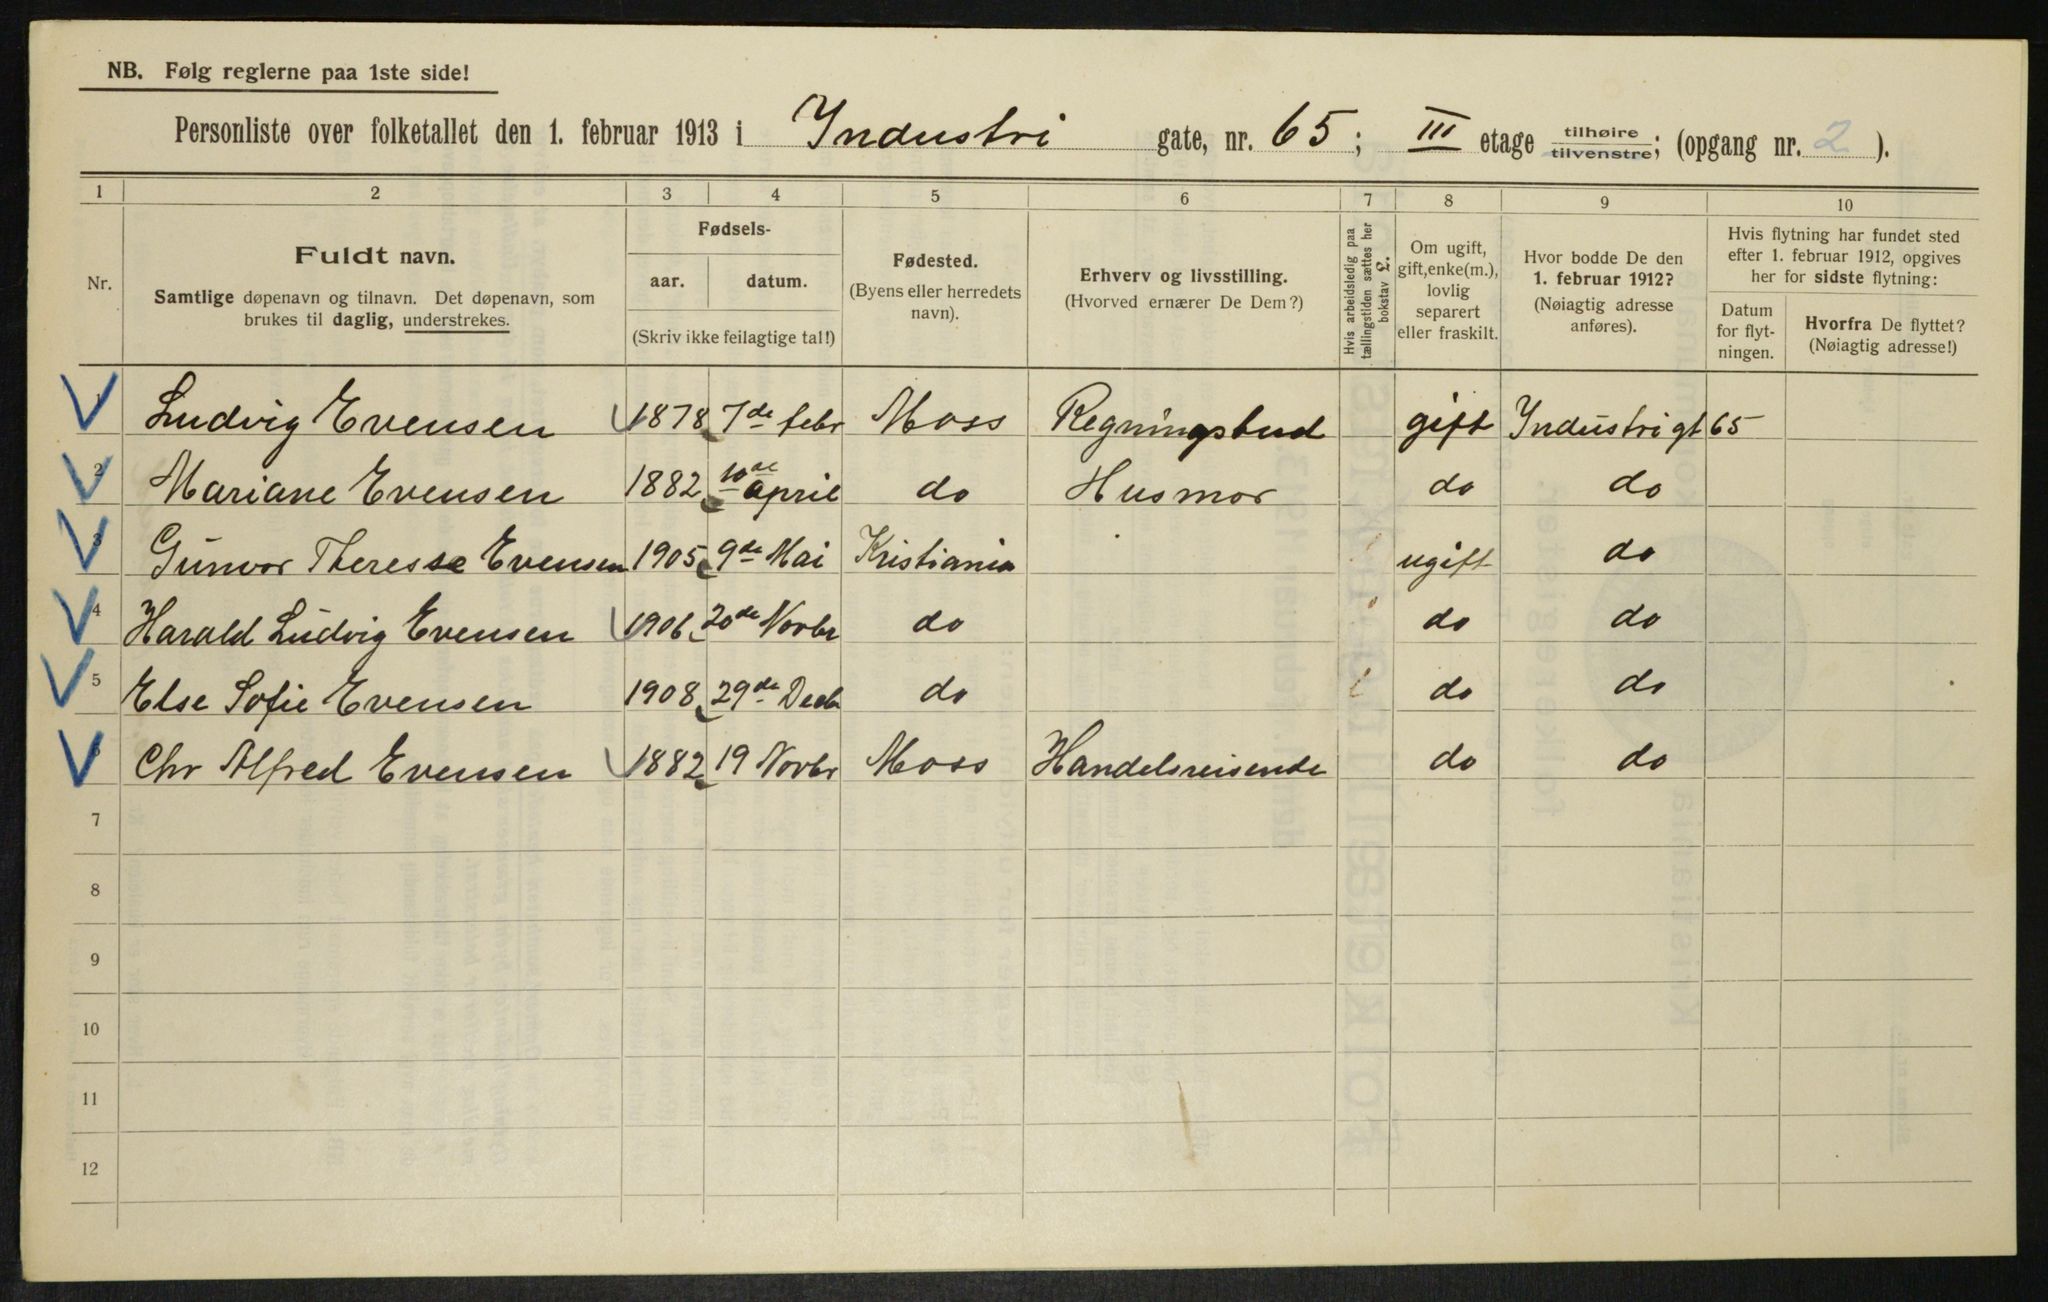 NB. Følg reglerne paa 1ste side!
Personliste over folketallet den 1. februar 1913 i Industri gate, nr. 65; III etage tilhøire tilvenstre; (opgang nr. 2).
1 2 3 4 5 6 7 8 9 10
Nr.
Fuldt navn.
Samtlige døpenavn og tilnavn. Det døpenavn, som
brukes til daglig, understrekes.
Fødsels-
aar. datum.
(Skriv ikke feilagtige tal!)
Fødested.
(Byens eller herredets
navn).
Erhverv og livsstilling.
(Hvorved ernærer De Dem?)
Hvis arbeidsledig paa
tællingstiden sættes her
bokstav £.
Om ugift,
gift, enke(m.),
lovlig
separert
eller fraskilt.
Hvor bodde De den
1. februar 1912?
(Nøiagtig adresse
anføres).
Hvis flytning har fundet sted
efter 1. februar 1912, opgives
her for sidste flytning:
Datum
for flyt-
ningen.
Hvorfra De flyttet?
(Nøiagtig adresse!)
1 Ludvig Evensen 1878 7de febr Moss Regningsbud gift Industrigt 65
2 Mariane Evensen 1882 10de april do Husmor do do
3 Gunvor Theresse Evensen 1905 9de Mai Kristiania ugift do
4 Harald Ludvig Evensen 1906 20de Novbr do do do
5 Else Sofie Evensen 1908 29de Decbr do do do
6 Chr Alfred Evensen 1882 19 Novbr Moss Handelsreisende do do
7
8
9
10
11
12